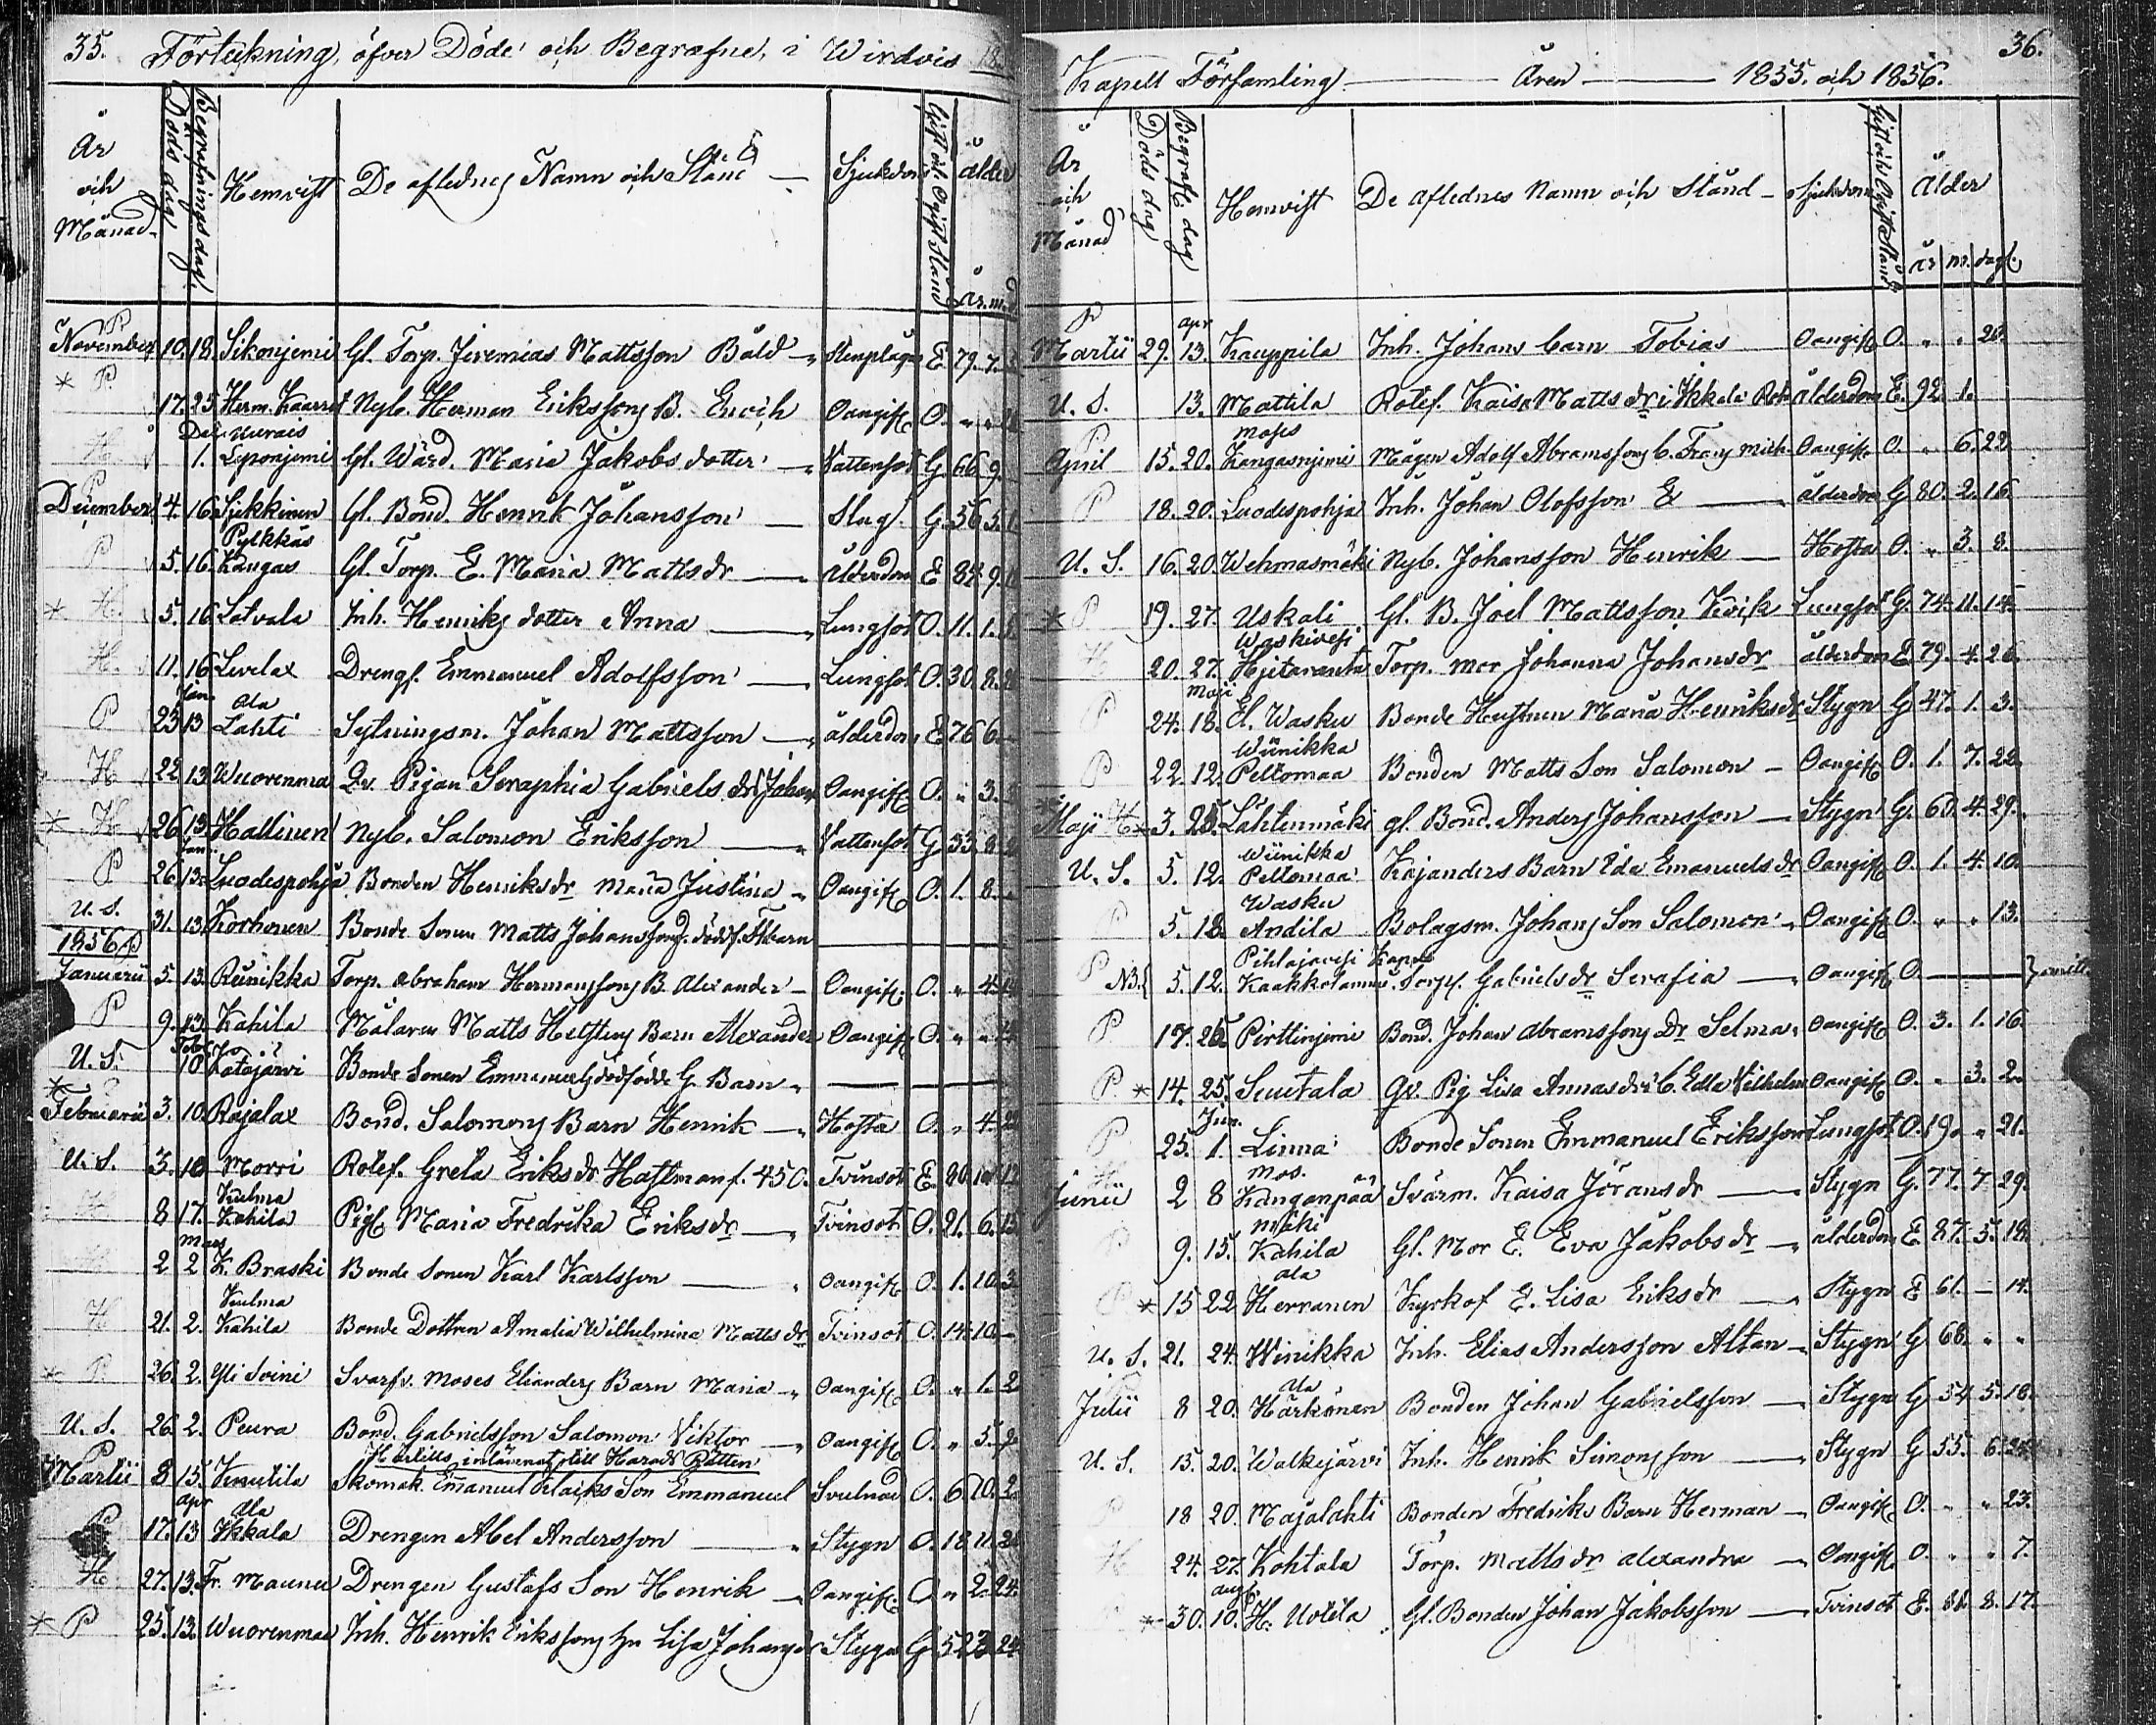 35. Förteckning, öfver Döde och Begrafne, i Wirdois 18
År och Månad Döds dag Begrafnings dag. Hemvist De aflednes Namn och Stånd Sjukdom Gift och Ogift Stånd Ålder År. m. d
P
November 10. 18. Sikonjemi Gl. Torp. Jeremias Mattsson Båld Stenplågor E 79. 7.
* P. 17. 25. Herm. Kaarret Nyb. Herman Erikssons B. Enoch Oangift O. " "
Dec.
H 1. Leponjemi Gl. Wärd. Maria Jakobs dotter Vattensot G. 66 9.
P
December 4. 16. Sukkinen Gl. Bond. Henrik Johansson Slag. G. 56 5. 1
Pylkkäs
P 5. 16. Kangas Gl. Torp. E. Maria Matts dr Ålderdom E 9.
* H. 5. 16 Latvala Inh. Henriks dotter Anna Lungsot O. 11. 1.
H. 11. 16 Livelax Drengs. Emmanuel Adolfsson Lungsot O. 30. 8.
Jan. Ala
P 23 13 Lahti Sytningsm. Johan Mattsson ålderdom E 76 6.
H 22 13 Wuorenmaa Qv. Pigan Seraphia Gabriels drs Johan Oangift O. " 3.
* H 26 13 Hallinen Nyb. Salomon Eriksson Vattensot G 53. 8.
Jan.
P 26. 13. Luodespohja Bonden Henriks dr Maria Justina Oangift O. 1. 8.
U. S. 31. 13. Korhonen Bonde Sonen Matts Johanssons dödf. Flbarn
1856 P
Januarii 5. 13. Reinikka Torp. Abraham Hermanssons B. Alexander Oangift. O. " 4.
P 9. 13. Kahila Målaren Matts Helstens Barn Alexander Oangift O. " "
Febr.
U. S. 10 Latojärvi Bonde Sonen Emmanuels dödfödde G. Barn
*
Februarii 3. 10. Rajalax Bond. Salomons Barn Henrik Hosta O. " 4.
U. S. 3. 10 Morri Rotef. Greta Eriks dr Haftman f. 450. Tvinsot E. 80 10 12
Kulma
8 17. Kahila Pigs. Maria Fredrika Eriks dr Tvinsot O. 21. 6. 13
mars
2 2 K. Braski Bonde Sonen Karl Karlsson Oangift O. 1. 10. 3
Kulma
H 21. 2. Kahila Bonde Dottren Amalia Wilhelmina Matts dr Tvinsot O. 14. 10.
* P. 26. 2. Yli Soini Svarfv. Moses Elianders Barn Maria Oangift O. " 1. 2
U. S. 26. 2. Peura Bond. Gabrielsson Salomon Viktor Oangift O. " 5.
P Härtills inlämnat till Härads Rätten
Martii 8 15. Knuutila Skomak. Emanuel Son Emmanuel O. 6 10. 2
apr Ala
P 17. 13 Ikkala Drengen Abel Andersson Stygn O. 18 11.
H 27. 13. Fr. Maunu Drengen Gustafs Son Henrik Oangift. O " 2. 24.
* P 25. 13. Wuorenmaa Inh. Henrik Erikssons hu Lisa Johans dr Stygn G 52 3 24
36.
Kapell Församling Åren 1855. och 1856.
År och Månad Döds dag Begrafs dag Hemvist De aflednes Namn och Stånd Sjukdom Gift och Ogift Stånd Ålder år m. dag.
P apr
Martii 29. 13. Kauppila Inh. Johans barn Tobias Oangift O. " " 28.
U. S. 13. Mattila Rotef. Kaisa Matts dr i Ikkala Rote ålderdom E. 92. 1.
P moses
April 15. 20. Kangasnjemi Mågen Adolf Abramssons b. Frans Mich Oangift O. " 6. 22
P 18. 20. Luodespohja Inh. Johan Olofsson E ålderdom G 80. 2. 16.
U. S. 16. 20. Wehmasmäki Nyb. Johansson Henrik Hosta O. " 3. 8.
* P 19. 27. Uskali Gl. B. Joel Mattsson Lungsot G. 74. 11. 14.
Waskivesi
H 20. 27. Hjitaranta Torp. mor Johanna Johans dr ålderdom E 79. 4. 26.
maji
P 24. 18. El. Wasku Bonde Hustrun Maria Henriks dr Stygn G 47. 1. 3.
Wiinikka
P 22. 12. Peltomaa Bonden Matts Son Salomon Oangift O. 1. 7. 22.
*
Maji H 3. 25. Lahtenmäki gl. Bond. Anders Johansson Stygn G. 60. 4. 29.
Wiinikka
U. S. 5. 12. Peltomaa Kajanders Barn Ida Emanuels dr Oangift O. 1. 4. 10.
Wasku
P 5. 18. Andila Bolagsm. Johans Son Salomon Oangift O. " " 13.
Pihlajavesi Kapell
P NB. 5. 12. Kaakkolammi. Gabriels dr Serafia Oangift O.
P. 17. 25. Pirttinjemi Bond. Johan Abramssons Dr Selma Oangift O. 3. 1. 16.
P. * 14. 25. Suutala Qv. Pig Lisa Annas drs b. Edla Vilhelm Oangift O. " 3. 2.
Jun.
P 25. 1. Linna Bonde Sonen Emmanuel Eriksson Lungsot O. 19. " 21.
H. Mos.
Junii 2 8 Kanganpää Svärm. Kaisa Jörans dr Stygn G. 77. 7 29.
mäki
P 9. 15. Kahila Gl. Mor E. Eva Jakobs dr ålderdom E. 87. 5. 18.
ala
P * 15 22 Herranen Kyrkof E. Lisa Eriks dr Stygn E 61. 14.
U. S. 21. 24. Winikka Inh. Elias Andersson Altan Stygn G 68. " "
Ala
Julii 8 20. Härkönen Bonden Johan Gabrielsson Stygn G 54. 5. 18.
U. S. 15. 20. Walkejärvi Inh. Henrik Simonsson Stygn G 55. 6.
P 18 20. Majalahti Bonden Fredriks Barn Herman Oangift O. " " 23.
H 24. 27. Kohtala Torp. Matts dr Alexandra Oangift O. " " 7.
aug.
* 30. 10. H. Uotila Gl. Bonden Johan Jakobsson Tvinsot E. 8. 17.